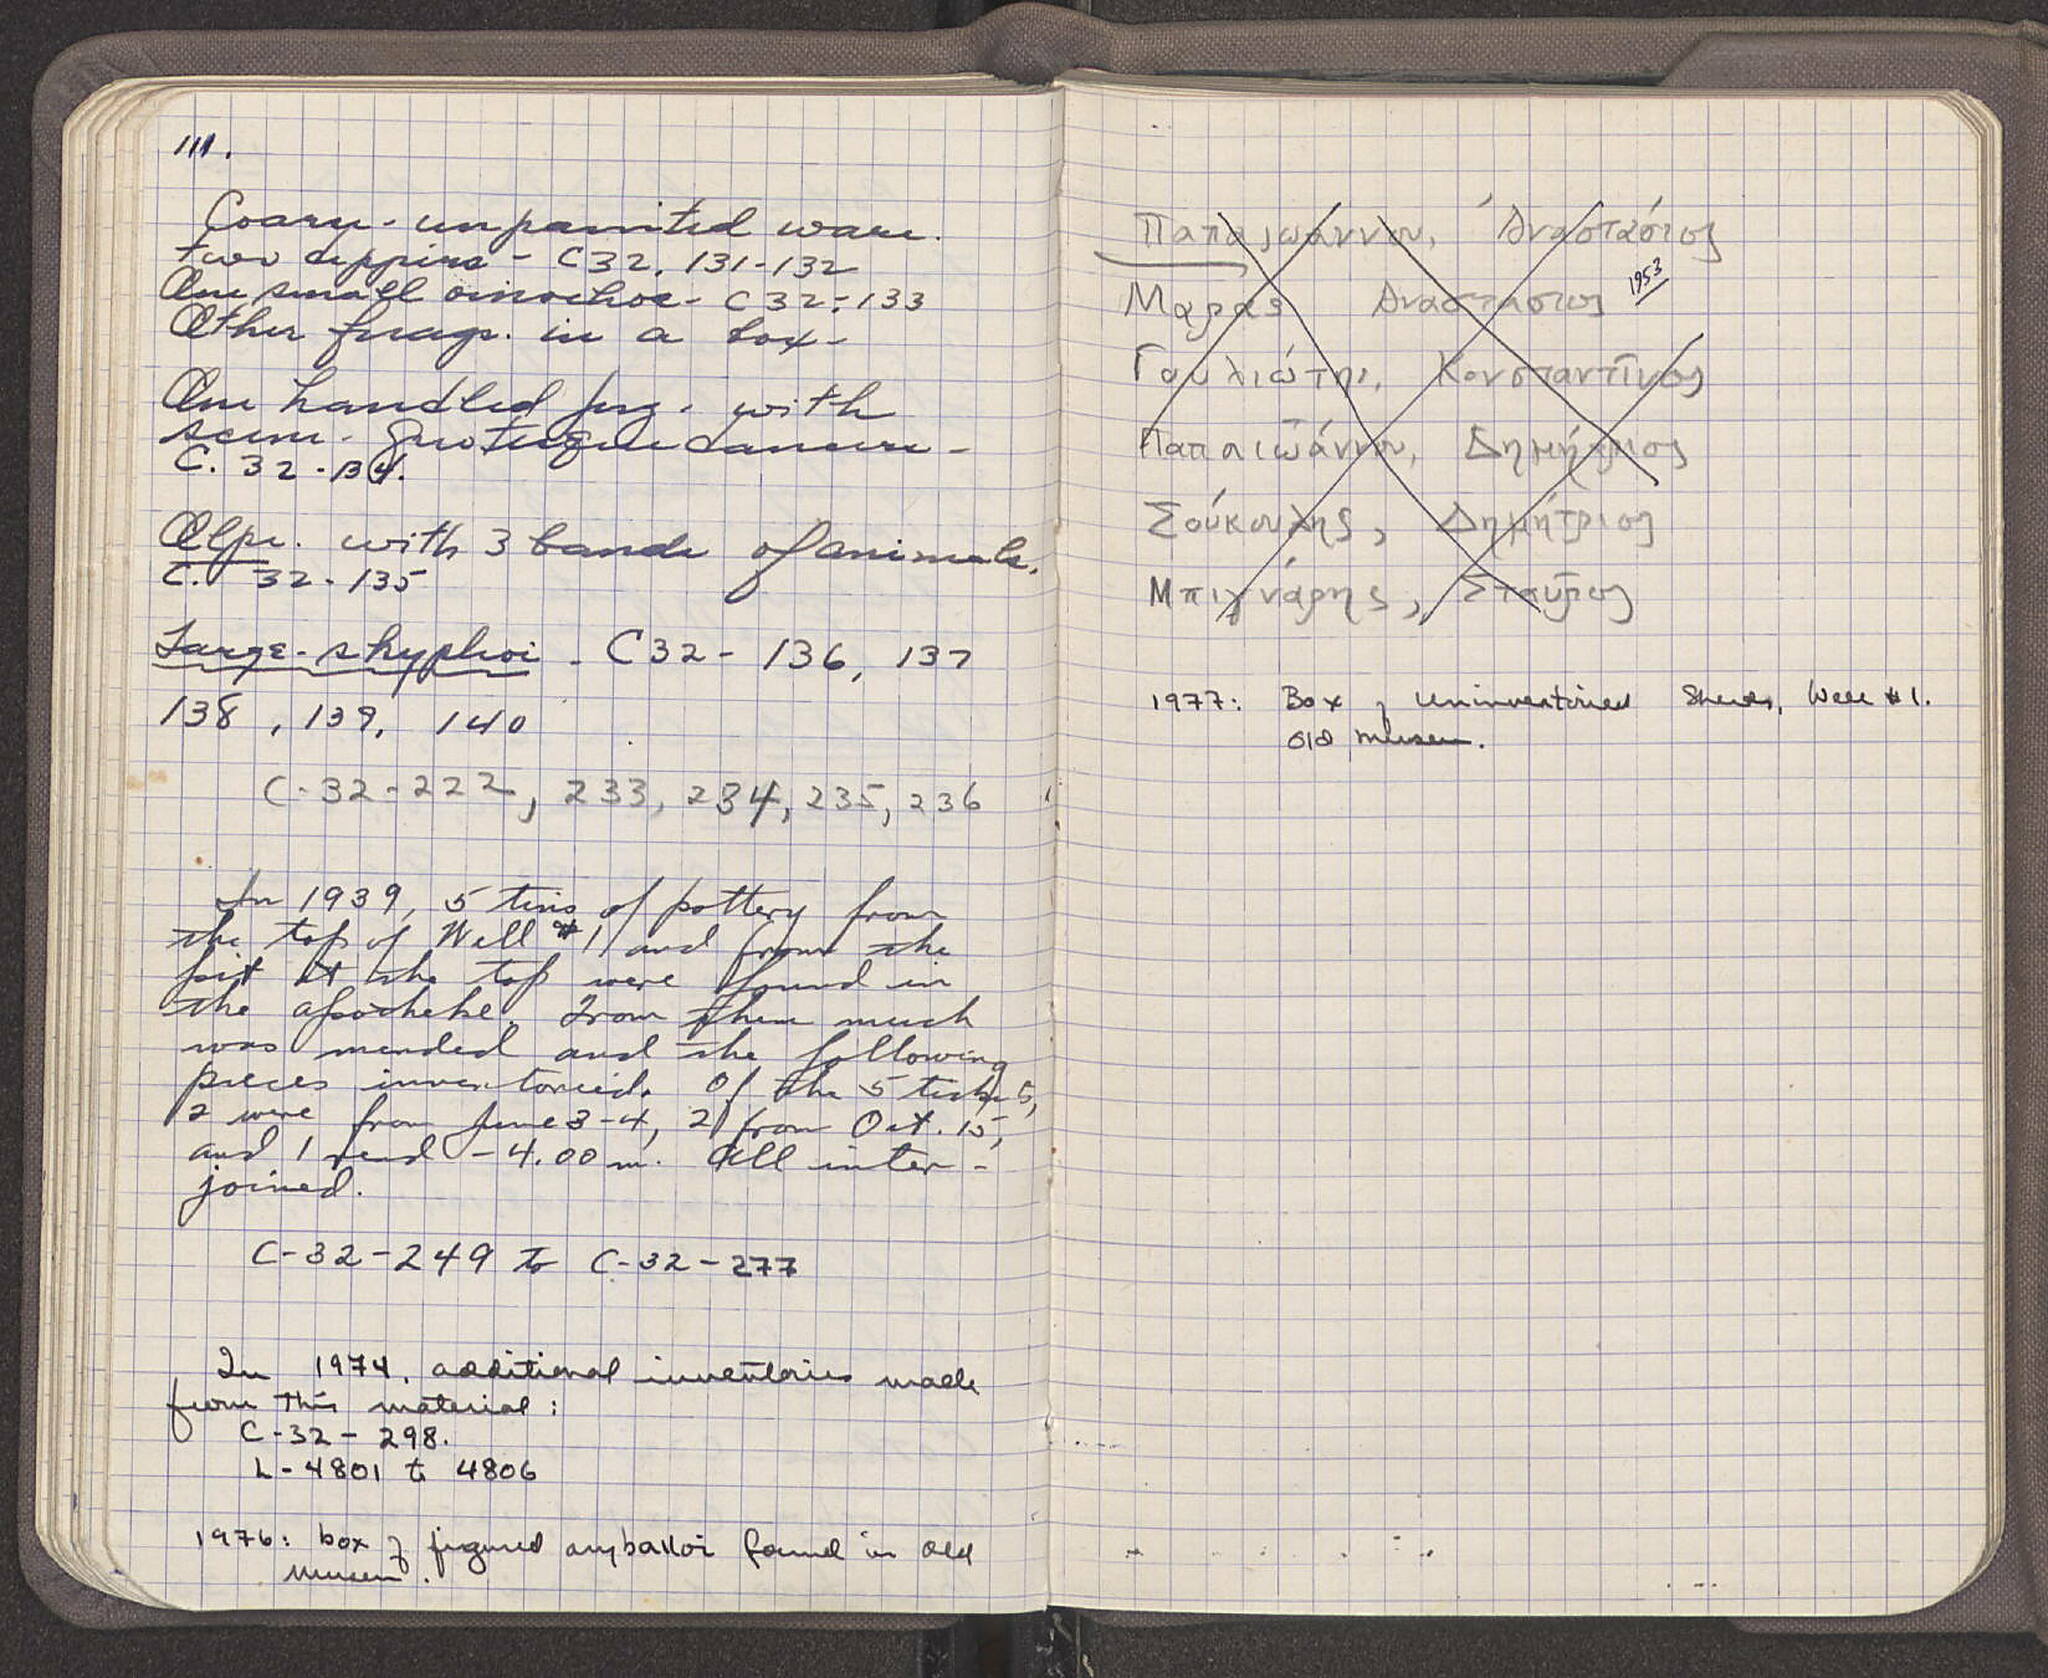 111.
Coarse unpainted ware.
two dippers - C32. 131-132
One small oinochoe - C32-133
Other frags. in a box -
One handled jug. with
scene. Grotesque dancers -
C. 32-134.
Olpe. with 3 bands of animals.
C. 32-135
Large skyphoi - C32-136, 137
138, 139, 140
C-32-222, 233, 234, 235, 236
In 1939, 5 tins of pottery from
the top of Well #1 and from the
pit at the top were found in
the apotheke. From them much
was mended and the following
pieces inventoried. Of the 5
2 were from June 3-4, 2 from Oct. 15,
and 1 read -4.00 m. All inter-
joined.
C-32-249 to C-32-277
In 1974, additional inventories made
from this material:
C-32-298.
L-4801 to 4806
1976: box of figured aryballoi found in old
museum.
Παπαιωάννου, Ἀναστάσιος
Μαρας Αναστασιος 1953
Γουλιώτης, Κονσταντῖνος
Παπαιωάννου, Δημήτριος
Σούκουλης, Δημήτριος
Μπιγνάρης, Σταῦρος
1977: Box of uninventoried sherds, Well #1.
old museum.